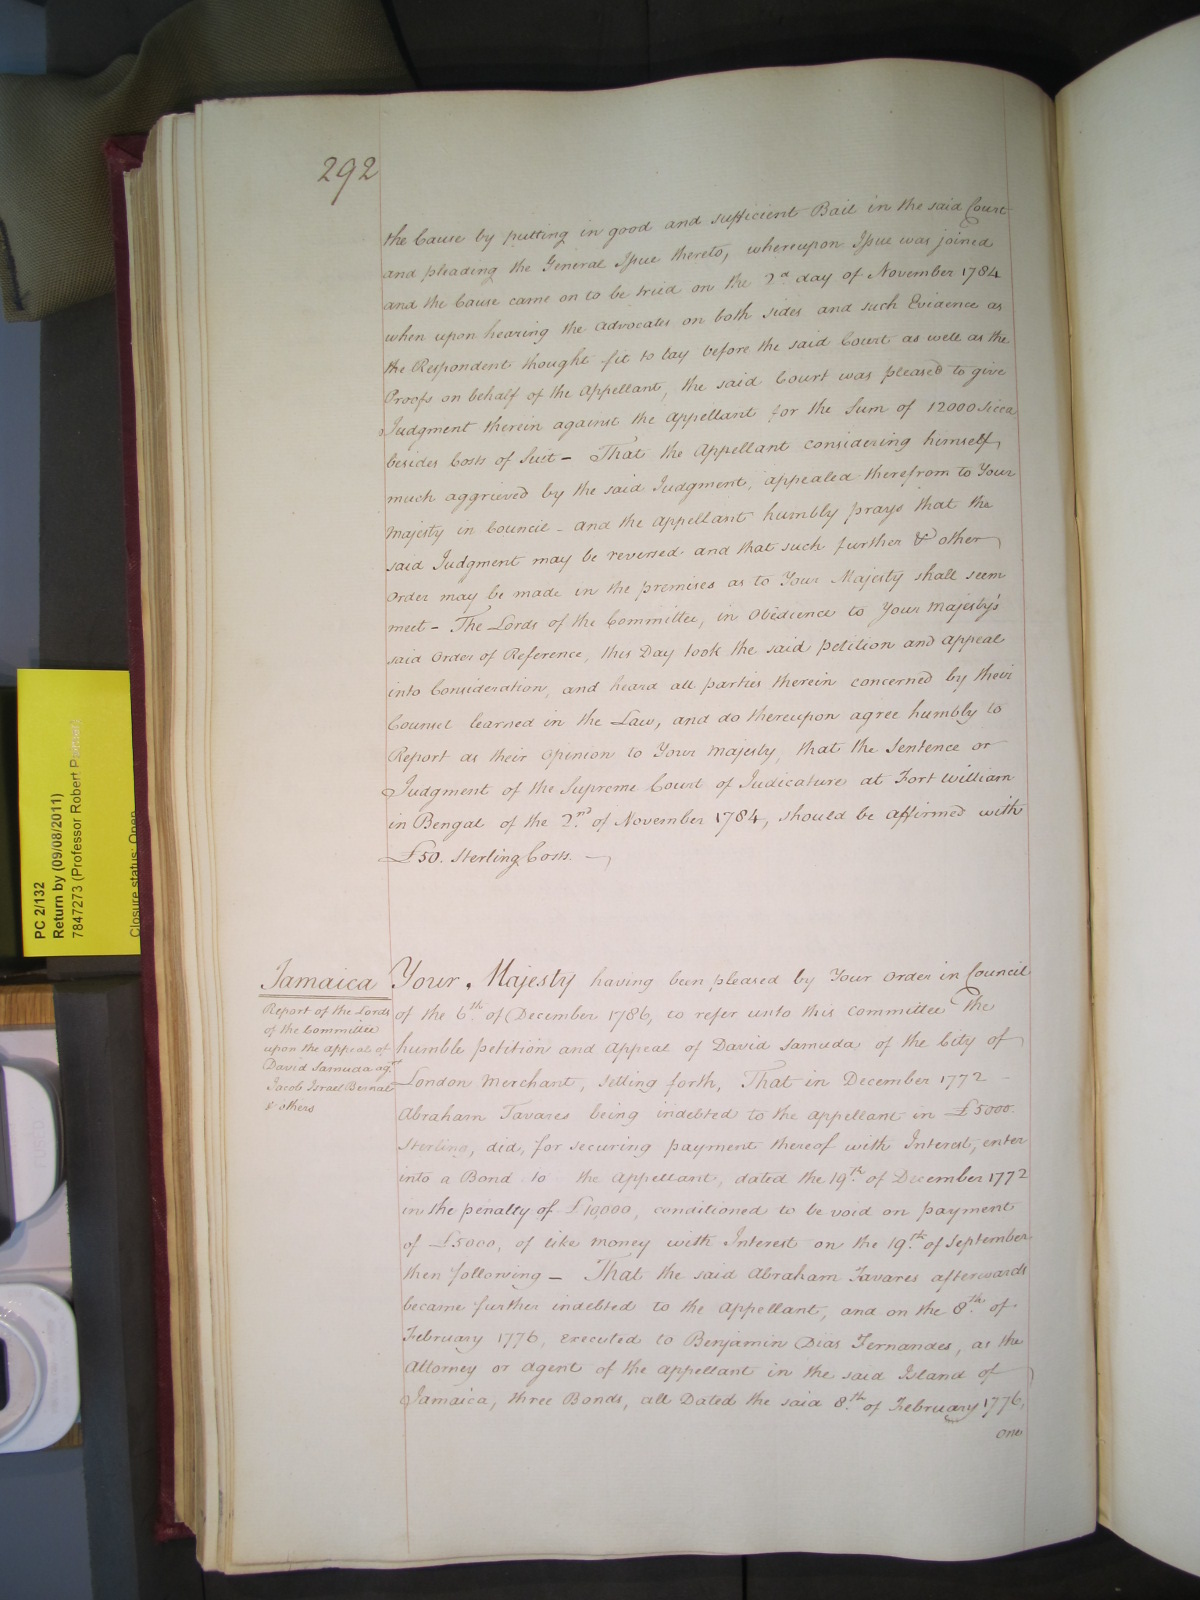 292
the Cause by putting in good and sufficient Bail in the said Court
and pleading the General Issue thereto, whereupon Issue was joined
and the Cause came on to be tried on the 2d day of November 1784
when upon hearing the Advocates on both sides and such Evidence as
the Respondent thought fit to lay before the said Court as well as the
Proofs on behalf of the Appellant, the said Court was pleased to give
Judgment therein against the Appellant for the Sum of 12000 Sicca
besides Costs of Suit – That the Appellant considering himself
much aggrieved by the said Judgment, appealed therefrom to Your
Majesty in Council – and the Appellant humbly prays that the
said Judgment may be reversed and that such further & other
Order may be made in the premises as to Your Majesty shall seem
meet – The Lords of the Committee, in Obedience to Your Majesty's
said Order of Reference, this Day took the said petition and Appeal
into Consideration, and heard all parties therein concerned by their
Counsel learned in the Law, and do thereupon agree humbly to
Report as their Opinion to Your Majesty, that the Sentence or
Judgment of the Supreme Court of Judicature at Fort William
in Bengal of the 2nd of November 1784, should be affirmed with
£50. Sterling Costs. —
Jamaica
Report of the Lords
of the Committee
upon the Appeal of
David Samuda agt
Jacob Israel Bernal
& others
Your Majesty having been pleased by Your Order in Council
of the 6th of December 1786, to refer unto this Committee The
humble petition and Appeal of David Samuda of the City of
London Merchant, setting forth, That in December 1772 –
Abraham Tavares being indebted to the Appellant in £5000.
Sterling, did, for securing payment thereof with Interest, enter
into a Bond to the Appellant, dated the 19th of December 1772
in the penalty of £10,000, conditioned to be void on payment
of £5000, of like money with Interest on the 19th of September
then following – That the said Abraham Tavares afterwards
became further indebted to the Appellant, and on the 8th of
February 1776, executed to Benjamin Dias Fernandes, as the
Attorney or Agent of the Appellant in the said Island of
Jamaica, three Bonds, all Dated the said 8th of February 1776,
one
PC 2/132
Return by (09/08/2011)
7847273 (Professor Robert
Closure status: Open